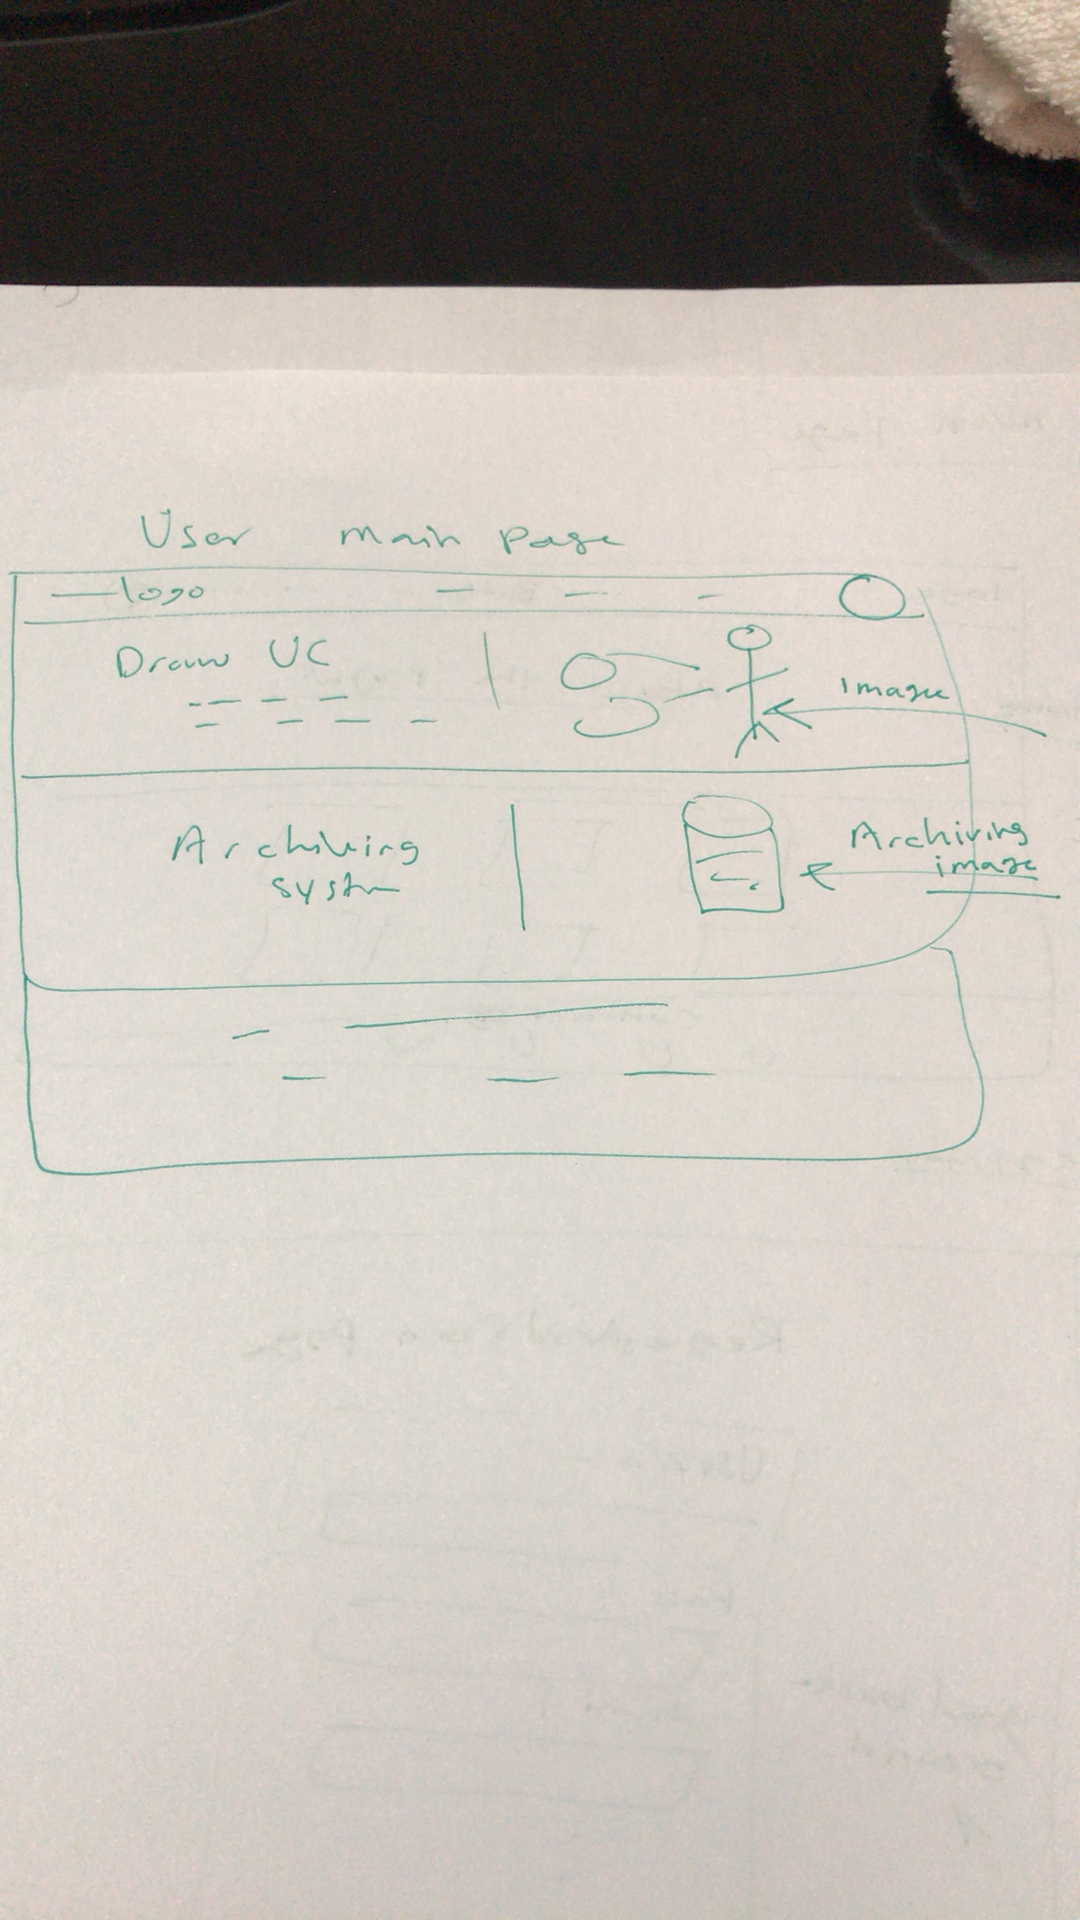 User main page
logo
Draw UC
image
Archiving
system
Archiving
image